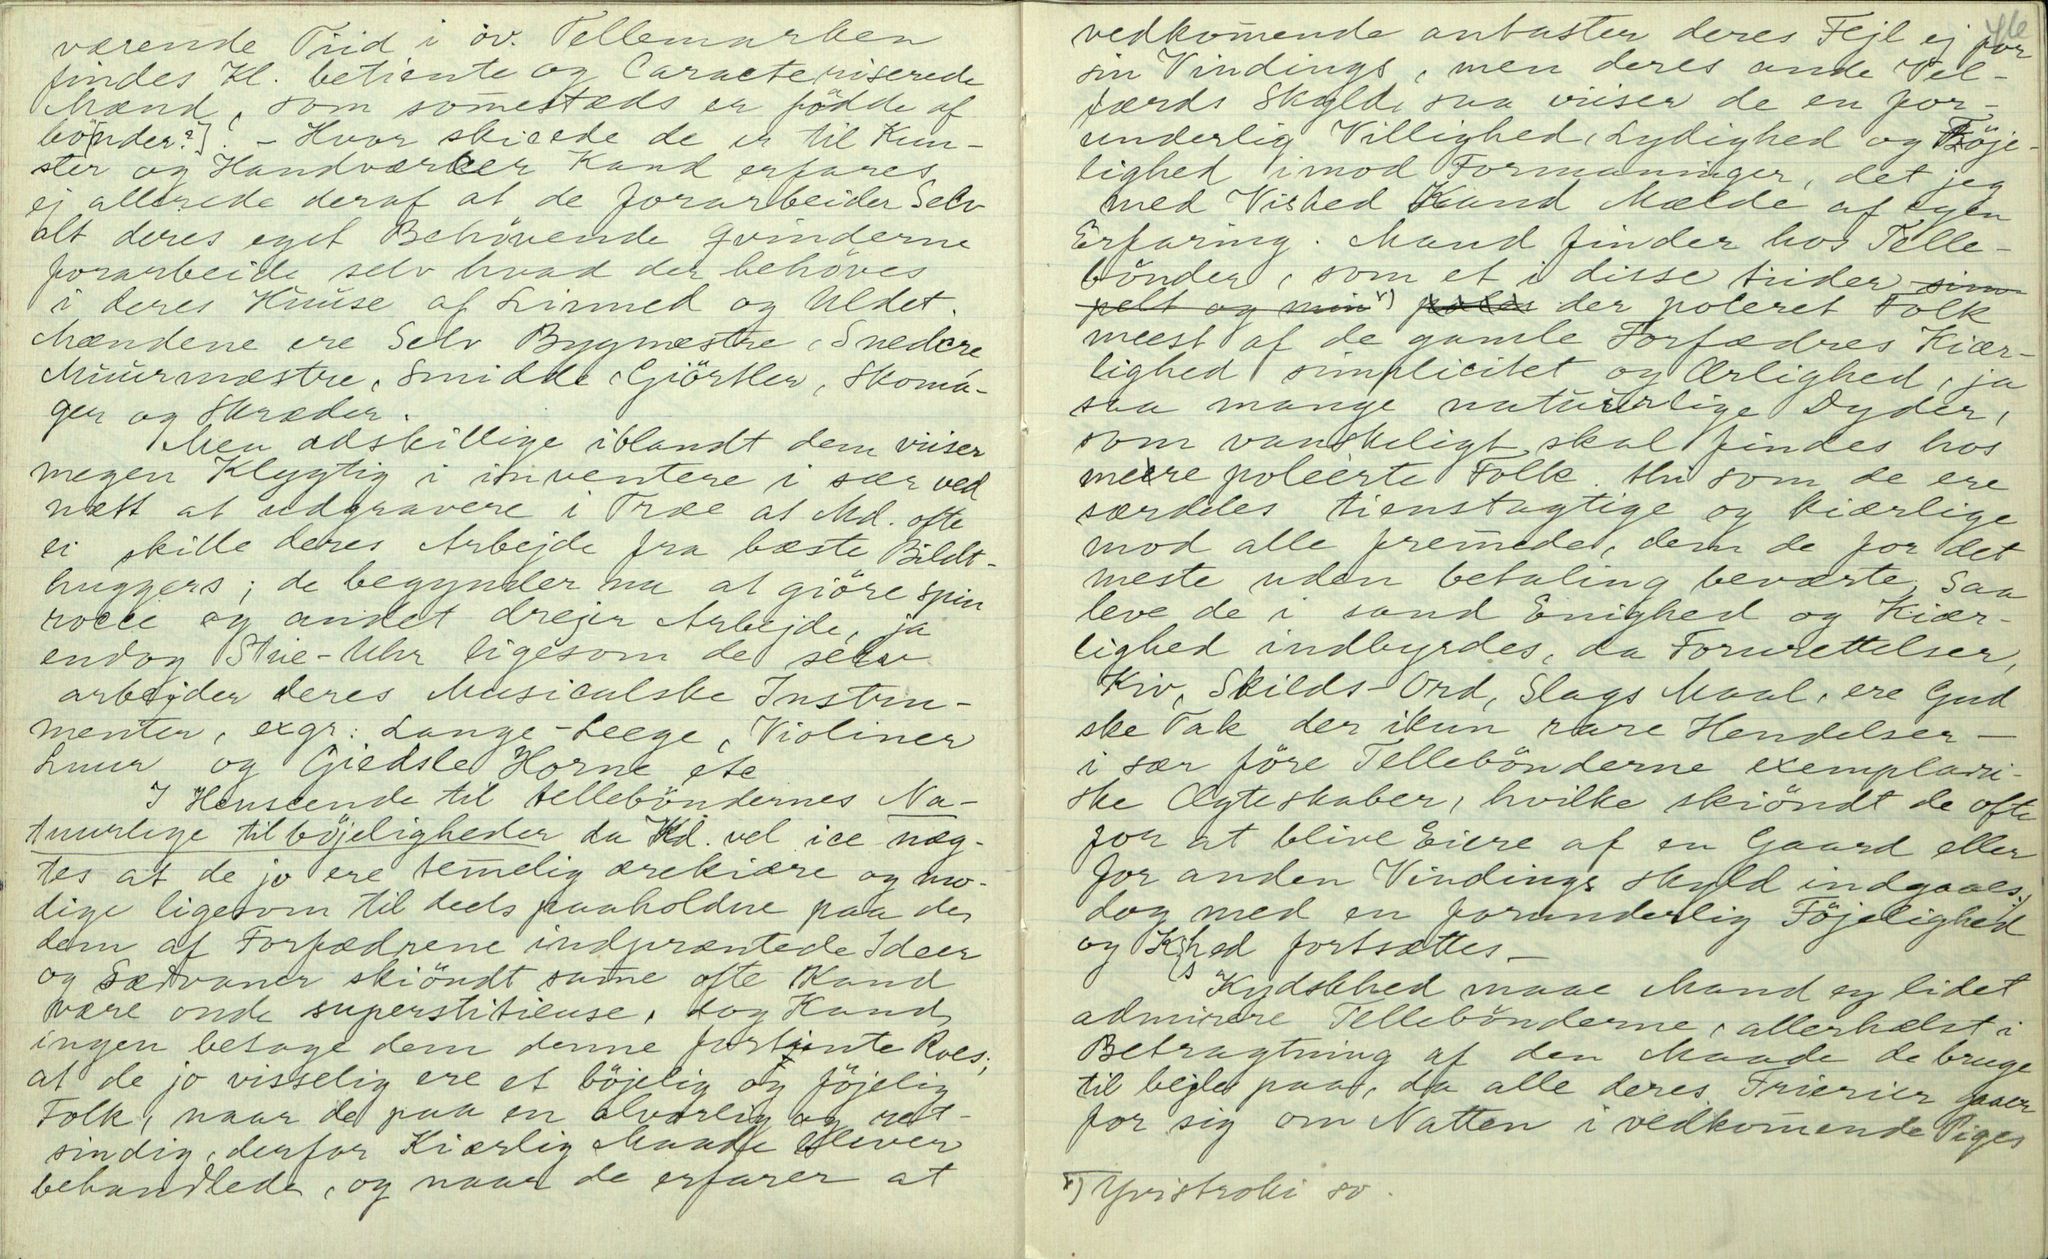 værende Tiid i öv. Tellemarken
findes Kl. betiente og Caracteriserede
Mænd, som somestæds er födde af
bö[nder?]. - Hvor skicede de er til Kun-
ster og Handværcer Kand erfares
ej allerede deraf at de forarbeider Selv
alt deres eget Behövende qvinderne
forarbeide selv hvad der behöves
i deres Huuse af Linned og Uldet.
Mændene ere Selv Bygmestre, Snedcre
Muurmæstre, Smidde, Giörtler, Skoma-
ger og Skræder.
Men adskillige iblandt dem viiser
megen Klygtig i inventere i sær ved
nætt at udgravere i Træe at Md. ofte
ei skille deres Arbejde fra bæste Bildt-
huggers; de begynder nu at giöre spin
rocce og andet drejer Arbejde, ja
endog Stue-Uhr ligesom de selv
arbejder deres Musicalske Instru-
menter, exgr: Lange-Leege, Violiner
Luur og Giedske Horne etc
I Henseende til telleböndernes Na-
tuurlige tilböjeligheder da Kd. vel ice næg-
tes at de jo ere temelig ærekiære og mo-
dige ligesom til deels paaholdne paa de
dem af Forfædrene indpræntede Ideer
og Sædvaner skiöndt same ofte Kand
være onde superstitieuse, dog Kand
ingen betage dem denne fortiente Roes;
at de jo visselig ere et böjelig og föjelig
Folk, naar de paa en alvorlig og ret-
sindig, derfor Kiærlig Maade bliver
behandlede, og naar de erfarer at
vedkomende antaster deres Fejl ej for
sin Vindings, men deres ande Vel-
færds Skyld, saa viiser de en for-
underlig Villighed, Lydighed og Föje-
lighed imod Formaninger, det jeg
med Vished Kand Mælde af egen
Erfaring. Mand finder hos Telle-
bönder, som et i disse tiider sim-
pelt og min x) der poleret Folk
meest af de gamle Forfædres Kiær-
lighed simplicitet og Ærlighed, ja
saa mange natuurlige Dyder,
som vanskeligt skal findes hos
meere poleerte Folk. thi som de ere
særddes tienstagtige og kiærlige
mod alle fremede, dem de for det
meste uden betaling beværte, Saa
leve de i sand Enighed og Kiær-
lighed indbyrdes, da Forurettelser,
Kiv, Skilds-Ord, Slags Maal, ere Gud
ske Tak der ikun rare Hendelser —
i sær före Tellebönderne exemplari-
ske Ægteskaber, hvilke skiöndt de ofte
for at blive Eiere af en Gaard eller
for anden Vindings skyld indgaaes,
dog med en forunderlig Föjelighed
og Kshed fortsættes —
Kydskhed maae Mand ey lidet
admirere Tellebönderne, allerhælst i
Betragtning af den Maade de bruge
til bejle paa, da alle deres Frierier gaaer
for sig om Natten i vedkomende Piges
x) Yvistroki so.